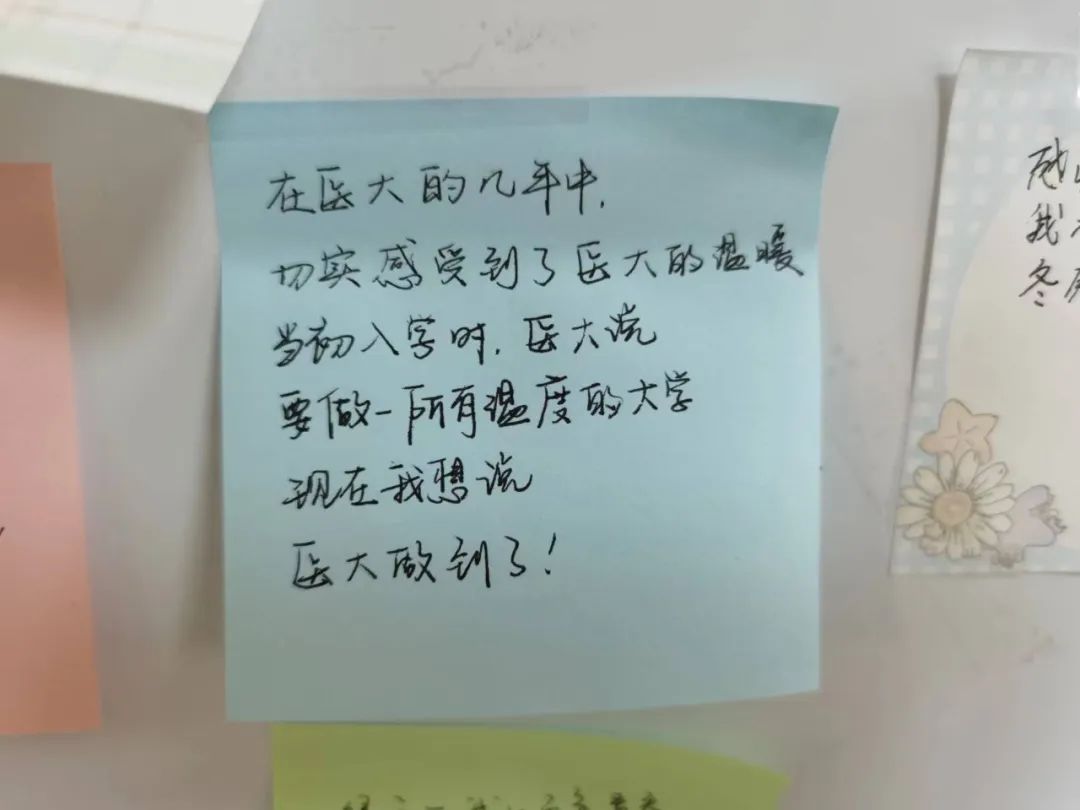 在医大的几年中,
切实感受到了医大的温暖
当初入学时,医大说
要做一所有温度的大学
现在我想说
医大做到了!
我
冬